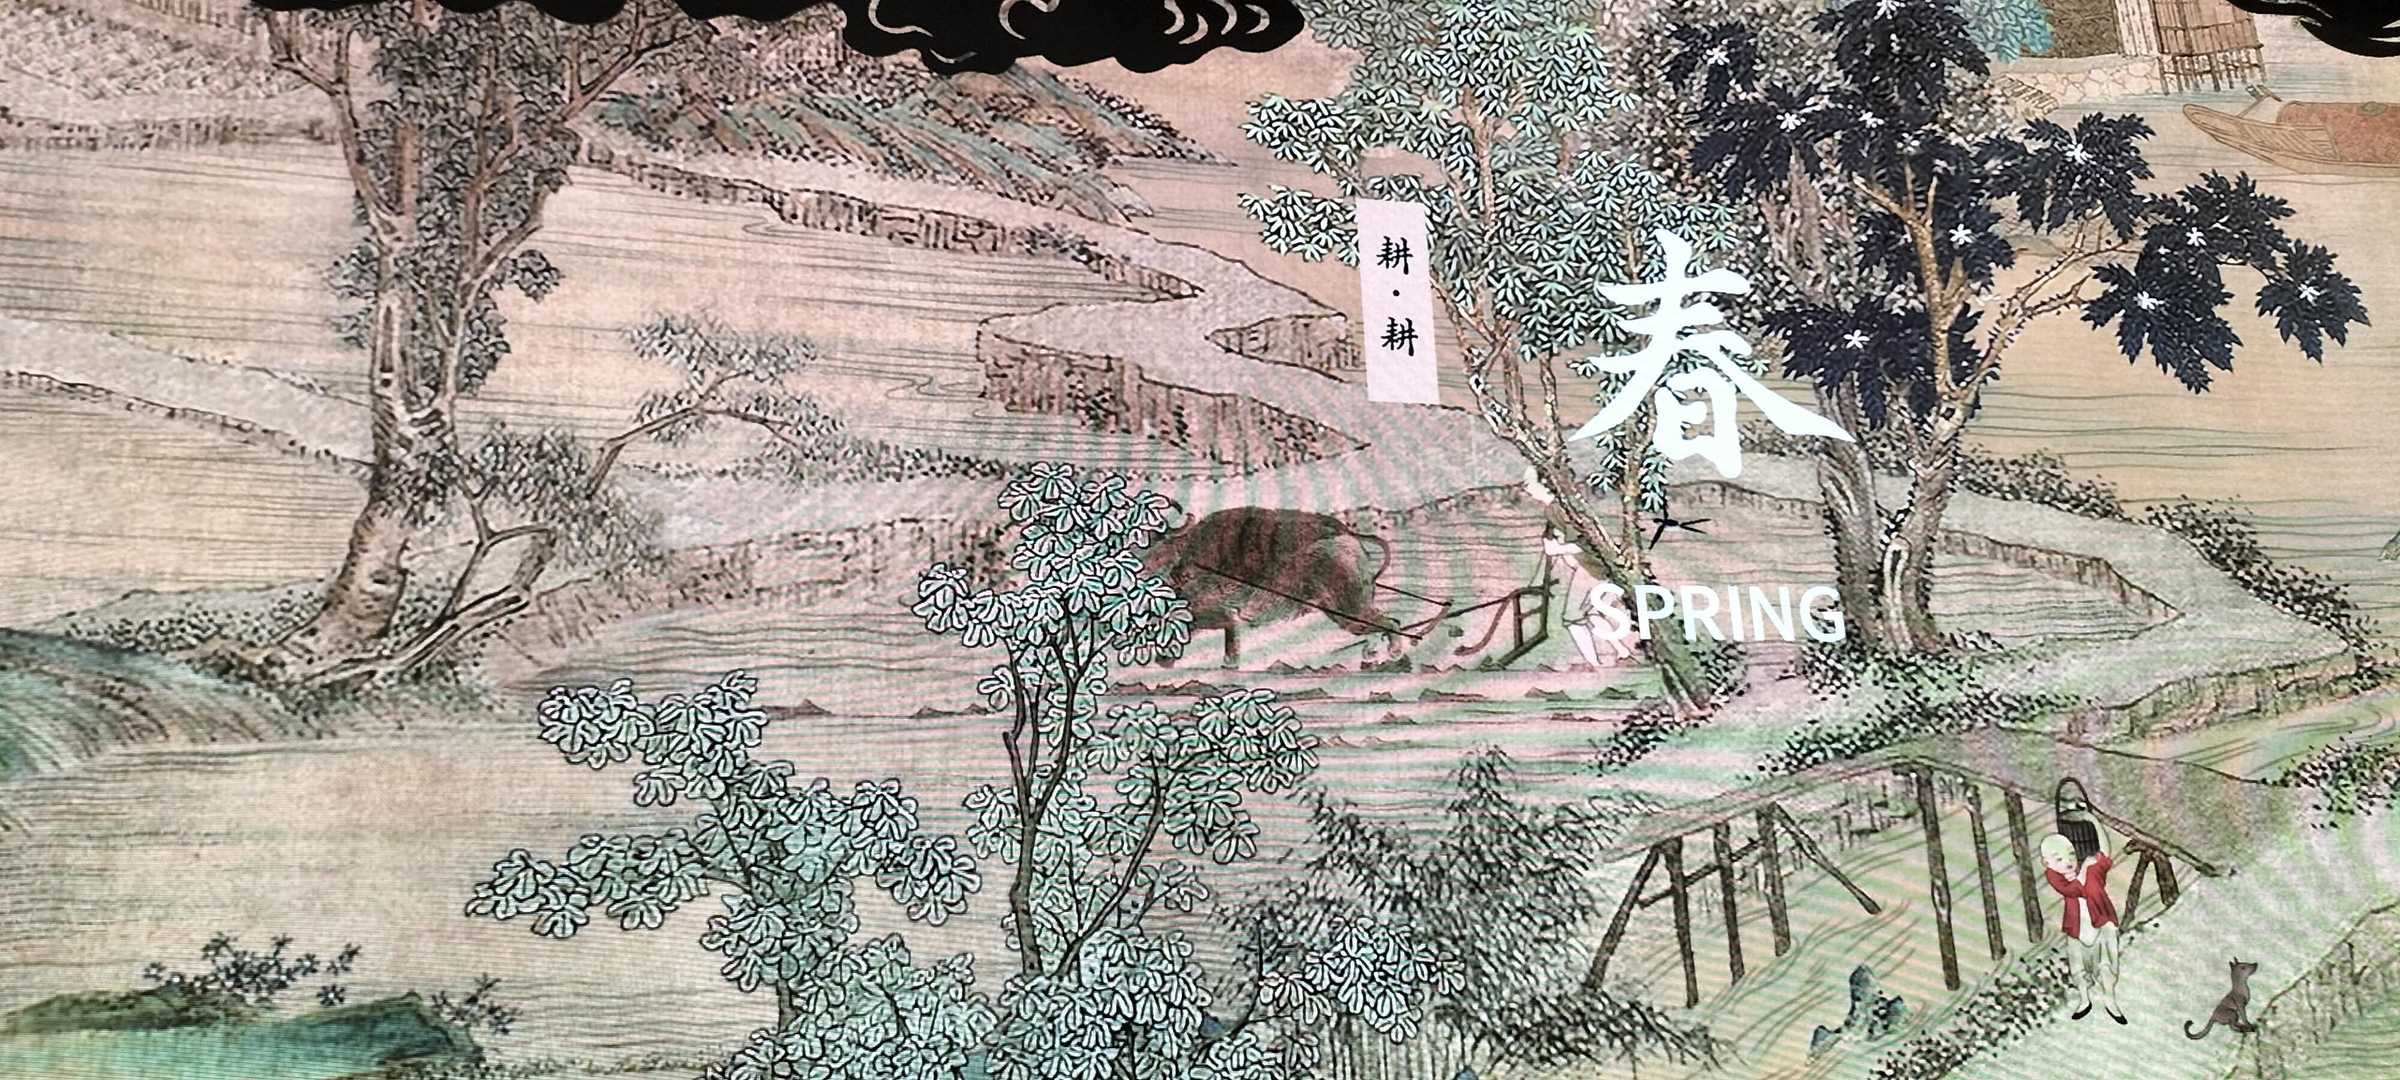 耕·耕
春
SPRING